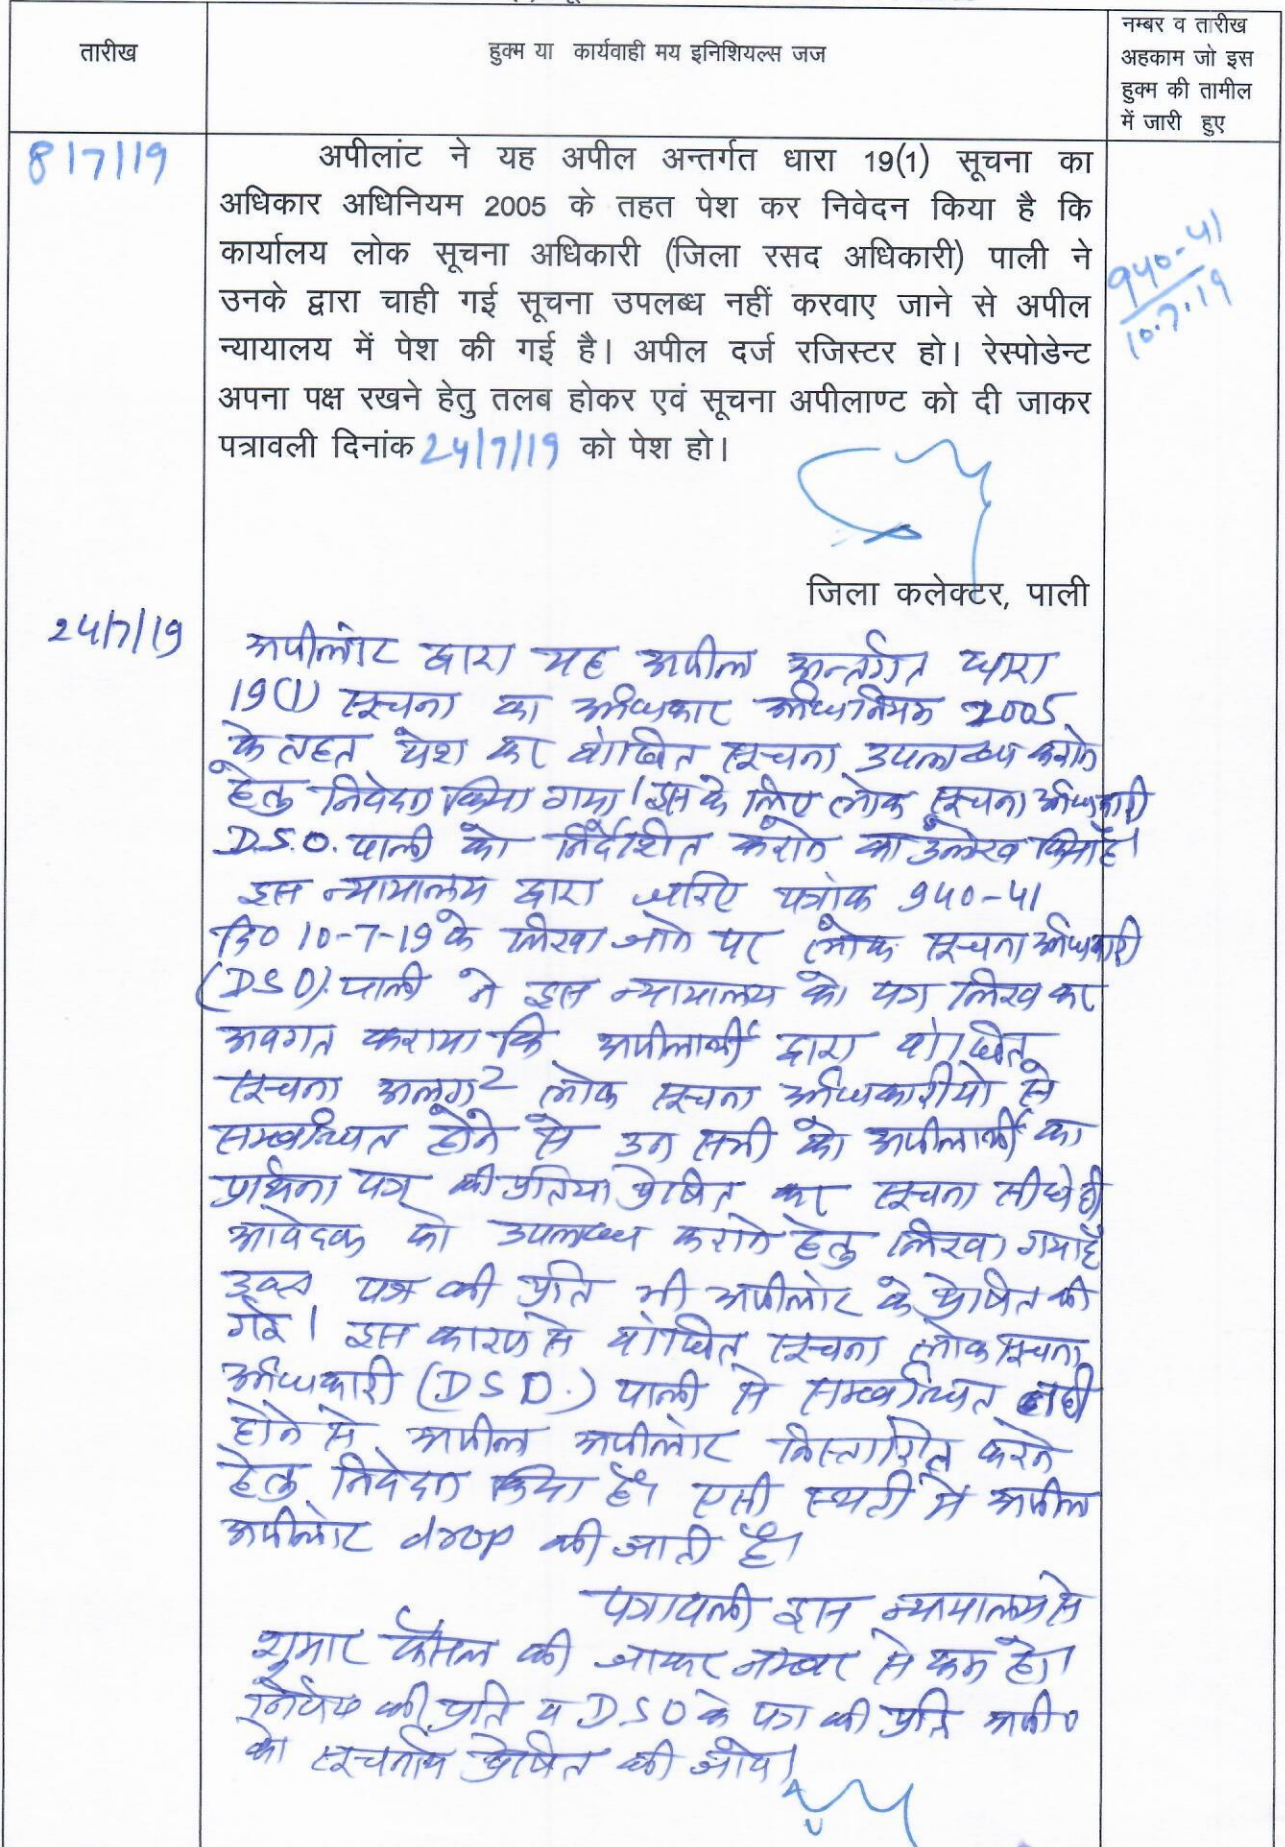 तारीख
हुक्म या कार्यवाही मय इनिशियल्स जज
नम्बर व तारीख
अहकाम जो इस
हुक्म की तामील
में जारी हुए
8/7/19
अपीलांट ने यह अपील अन्तर्गत धारा 19(1) सूचना का
अधिकार अधिनियम 2005 के तहत पेश कर निवेदन किया है कि
कार्यालय लोक सूचना अधिकारी (जिला रसद अधिकारी) पाली ने
उनके द्वारा चाही गई सूचना उपलब्ध नहीं करवाए जाने से अपील
न्यायालय में पेश की गई है। अपील दर्ज रजिस्टर हो। रेस्पोडेन्ट
अपना पक्ष रखने हेतु तलब होकर एवं सूचना अपीलाण्ट को दी जाकर
पत्रावली दिनांक 24/7/19 को पेश हो।
940-41
10.7.19
जिला कलेक्टर, पाली
24/7/19
अपीलांट द्वारा यह अपील अन्तर्गत धारा
19(1) सूचना का अधिकार अधिनियम 2005
के तहत पेश कर वांछित सूचना उपलब्ध कराने
हेतु निवेदन किया गया। इस के लिए लोक सूचना अधिकारी
D.S.O. पाली को निर्देशित कराने का उल्लेख किया है।
इस न्यायालय द्वारा जरिए पत्रांक 940-41
दि० 10-7-19 के लिखा जाने पर लोक सूचना अधिकारी
(DSO) पाली ने इस न्यायालय को पत्र लिख कर
अवगत कराया कि अपीलार्थी द्वारा वांछित
सूचना अलग2 लोक सूचना अधिकारीयो से
सम्बन्धित होने से उन सभी को अपीलार्थी का
प्रार्थना पत्र की प्रतिया प्रेषित कर सूचना सीधे ही
आवेदक को उपलब्ध कराने हेतु लिखा गया है
उक्त पत्र की प्रति भी अपीलांट के प्रेषित की
गई। इस कारण से वांछित सूचना लोक सूचना
अधिकारी (DSO.) पाली से सम्बन्धित नही
होने से अपील अपीलांट निस्तारित करने
हेतु निवेदन किया है। एसी स्थती में अपील
अपीलांट drop की जाती है।
पत्रावली इस न्यायालय से
शुमार फैसल की जाकर नम्बर से कम हो।
निर्णय की प्रति व DSO के पत्र की प्रति अपी०
को सूचनार्थ प्रेषित की जावे।